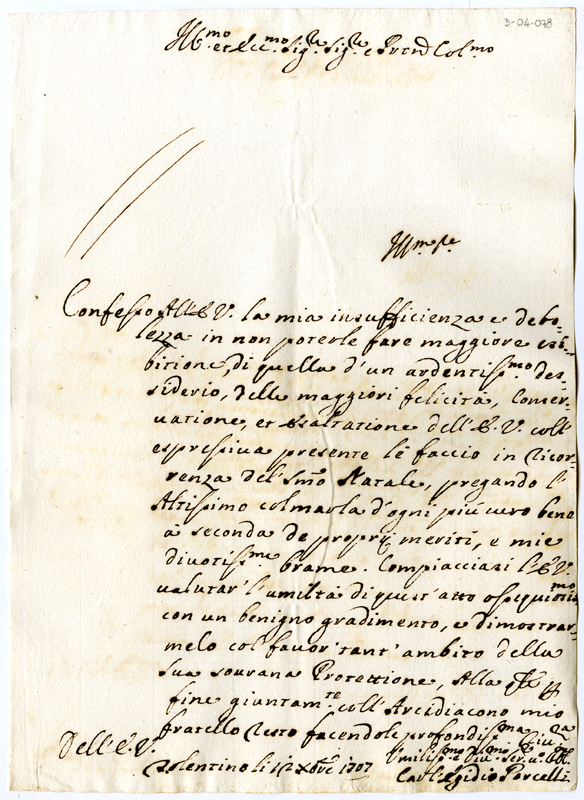 3-04-078
Ill.mo et Ecc.mo Sig.re Sig.re e Pron Col.mo
Confesso All'E.V. la mia insufficienza e debo-
lezza in non poterle fare maggiore esi-
bitione, di quella d'un ardentiss.mo des-
siderio, delle maggiori felicità, Conser-
vatione, et esaltatione dell'E.V. coll'
espressiva presente le faccio in ricor-
renza del S.mo Natale, pregando l'
Altissimo colmarla d'ogni più vero bene
à seconda de proprij meriti, e mie
divotiss.me brame. Compiacciasi l'E.V.
valutar l'umiltà di quest'atto ossequiosiss.mo
con un benigno gradimento, e dimostrar-
melo col favor tant'ambito della
sua sovrana Protettione, Alla
fine giuntam.te coll'Arcidiacono mio
fratello resto facendole profondiss.ma
Dell'E.V.
Tolentino li 12 Xbre 1707
Umiliss.mo
Cav.r Egidio Porcelli